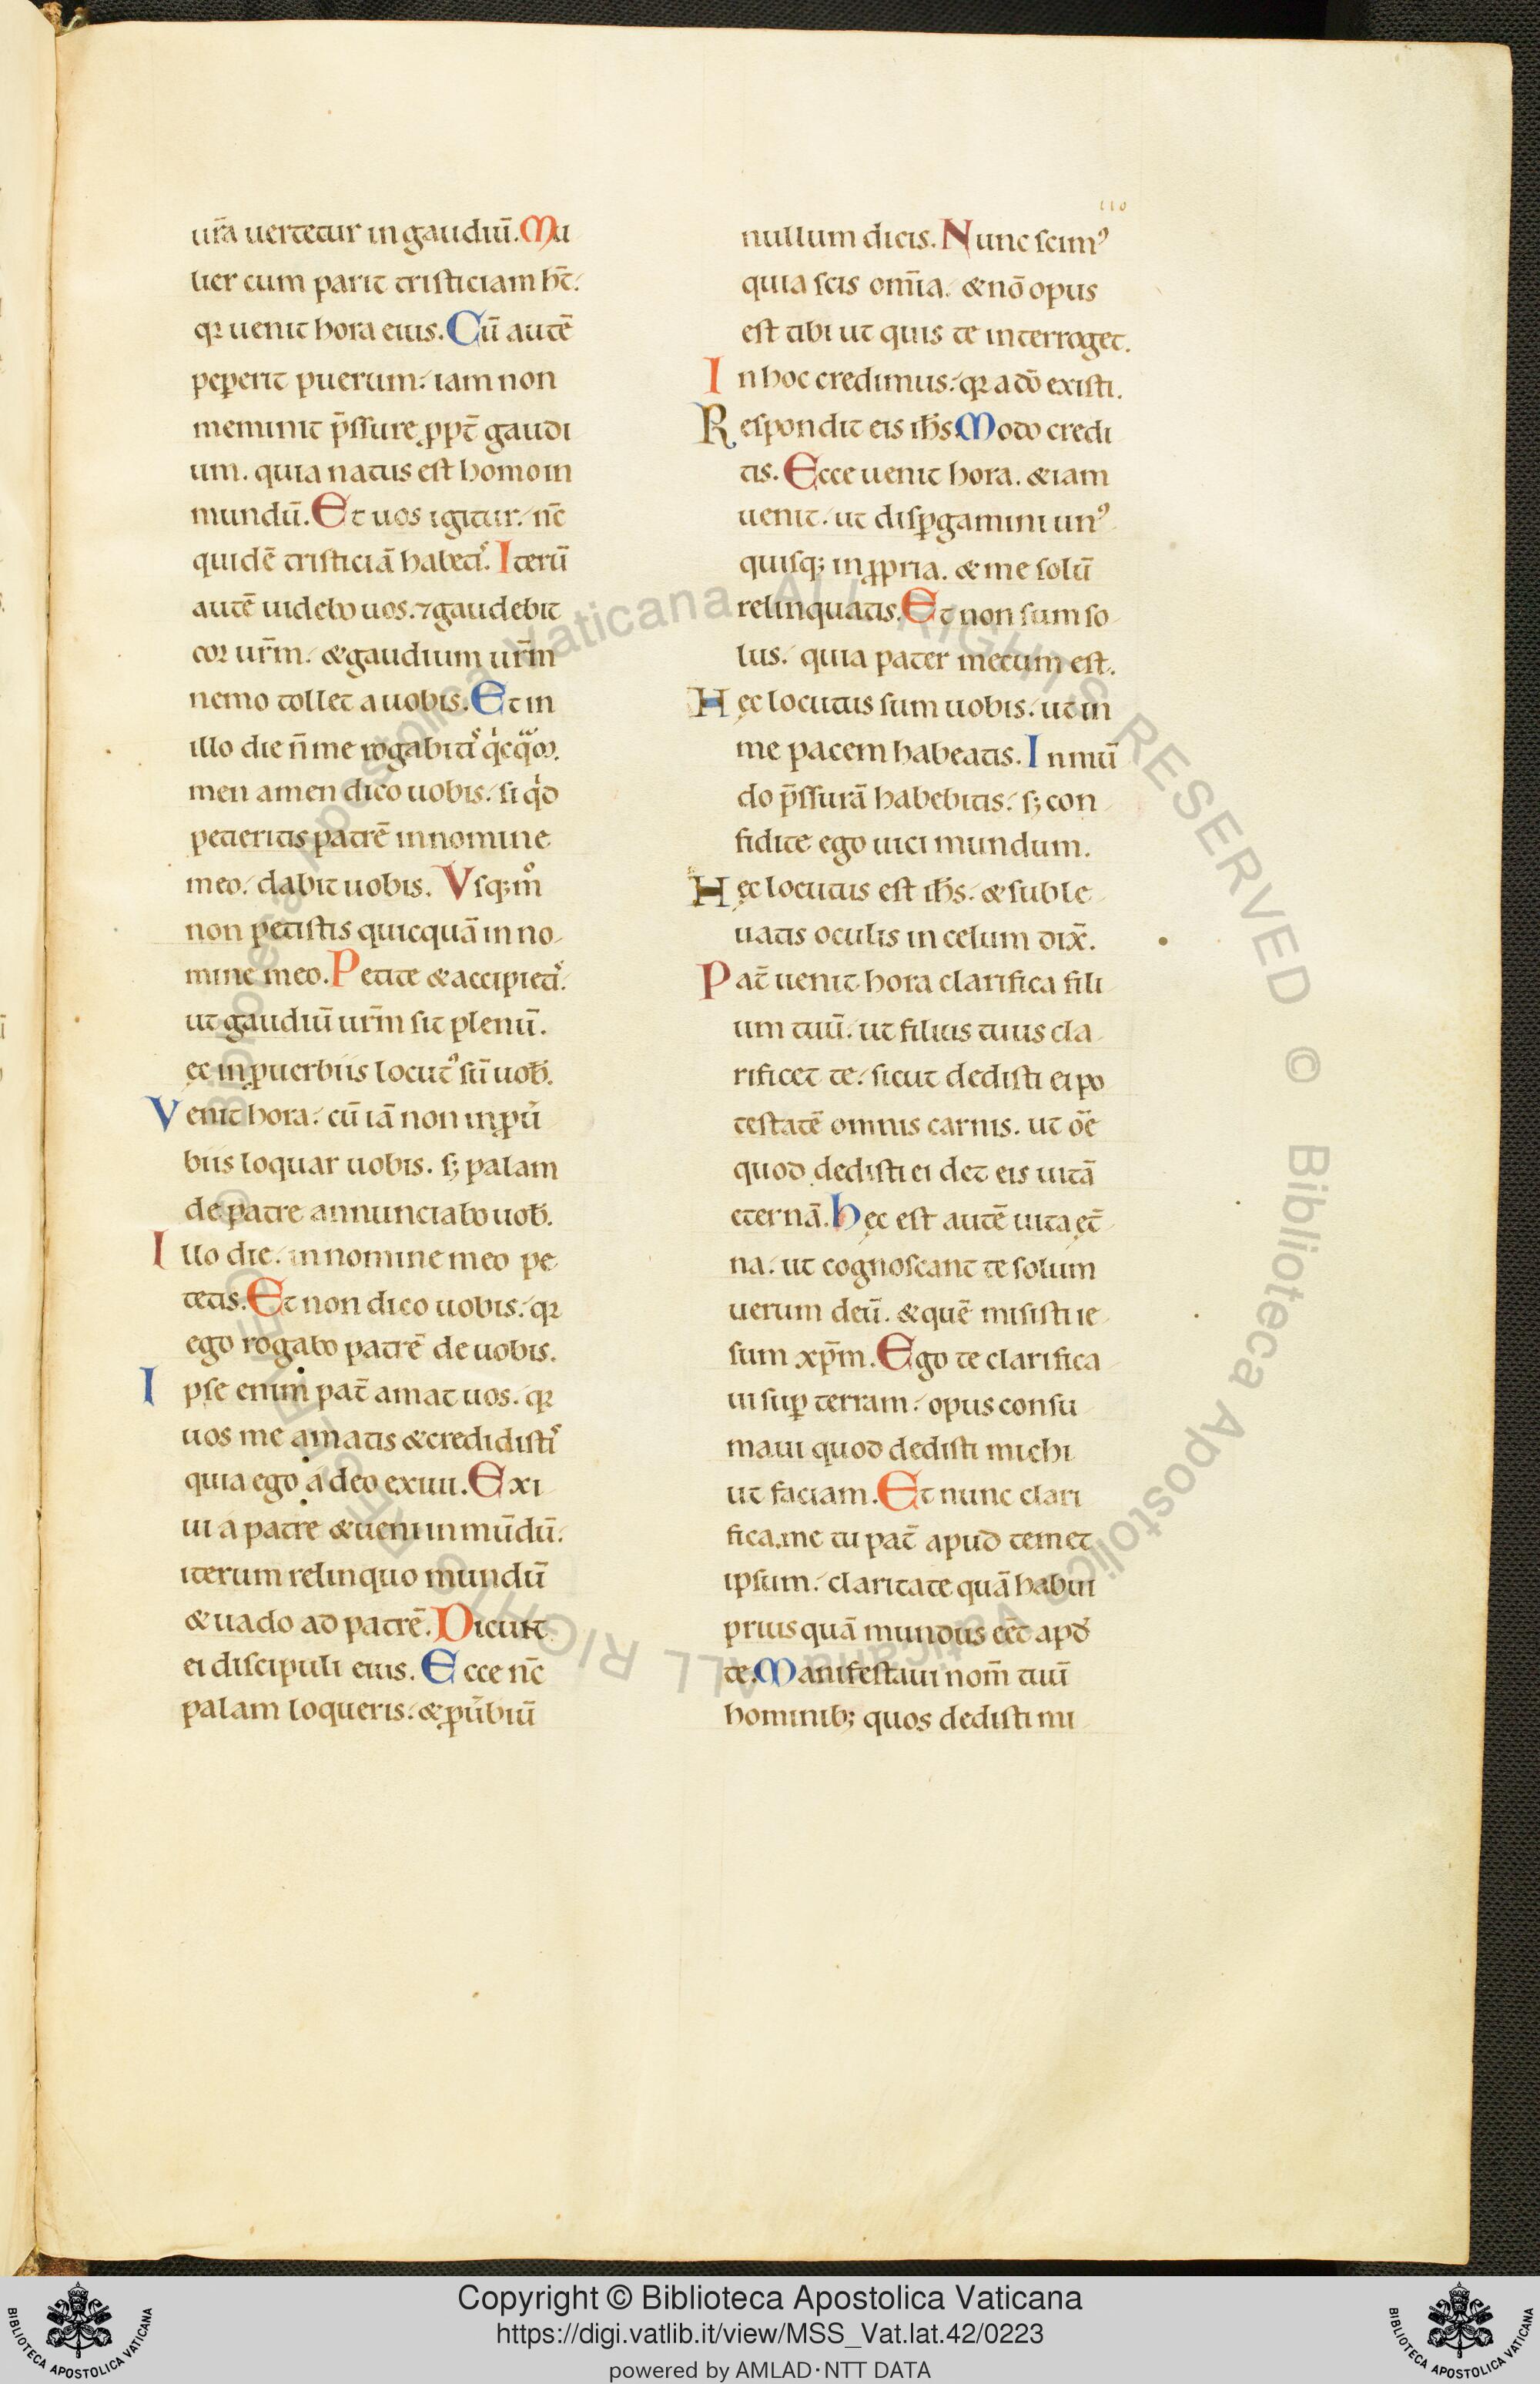 110
ur̄a uertetur in gaudiū. Mu
lier cum parit tristiciam ht̄.
qꝛ uenit hora eius. Cū autē
peꝑerit puerum. iam non
meminit p̄ssure ꝓpt̄ gaudi
um. quia natus est homo in
mundū. Et uos igitur. nc̄
quidē tristiciā habetiˢ. Iterū
autē uidebo uos. ⁊gaudebit
coꝛ ur̄m. &gaudium ur̄m
nemo tollet a uobis. Et in
illo die n̄ me rogabitiˢ
men amen dico uobis. si qͥd
petieritis patrē in nomine
meo. dabit uobis. Vsqꝫ mͦ
non petistis quicquā in no
mine meo. Petite &accipietiˢ.
ut gaudiū ur̄m sit plenū.
ęc in ꝓuerbiis locutꝰ sū uob̄.
Venit hora. cū iā non in ꝓū
biis loquar uobis. sꝫ palam
de patre annunciabo uob̄.
Illo die. in nomine meo pe
tetis. Et non dico uobis. qꝛ
ego rogabo patrē de uobis.
Ipse enim pat̄ amat uos. qꝛ
uos me amatis &credidistiˢ
quia ego a deo exiui. Exi
ui a patre &ueni in mūdū.
iterum relinquo mundū
&uado ad patrē. Dicunt
ei discipuli eius. Ecce nc̄
palam loqueris. &ꝓūbiū
nullum dicis. Nunc scimꝰ
quia scis om̄ia. &nō opus
est tibi ut quis te interroget.
In hoc credimus. qꝛ a dō existi.
Respondit eis ih̄s Modo credi
tis. Ecce uenit hora. &iam
uenit. ut disꝑgamini unꝰ
quisqꝫ in ꝓpria. &me solū
relinquatis. Et non sum so
lus. quia pater mecum est.
Hęc locutus sum uobis. ut in
me pacem habeatis. In mū
do p̄ssurā habebitis. sꝫ con
fidite ego uici mundum.
Hęc locutus est ih̄s. &suble
uatis oculis in celum dix̄.
Pat̄ uenit hora clarifica fili
um tuū. ut filius tuus cla
rificet te. sicut dedisti ei po
testatē omnis carnis. ut oē
quod dedisti ei det eis uitā
eternā. hęc est autē uita ęt̄
na. ut cognoscant te solum
uerum deū. &quē misisti ie
sum xp̄m. Ego te clarifica
ui suꝑ terram. opus consu
maui quod dedisti michi
ut faciam. Et nunc clari
fica me tu pat̄ apud temet
ipsum. claritate quā habui
prius quā mundus eēt apd̄
te. Manifestaui nom̄ tuū
hominibꝫ quos dedisti mi
© Biblioteca Apostolica Vaticana ALL RIGHTS RESERVED © Biblioteca Apostolica Vaticana ALL RIGHTS RESERVED
Copyright © Biblioteca Apostolica Vaticana
https://digi.vatlib.it/view/MSS_Vat.lat.42/0223
powered by AMLAD·NTT DATA
BIBLIOTECA APOSTOLICA VATICANA
BIBLIOTECA APOSTOLICA VATICANA